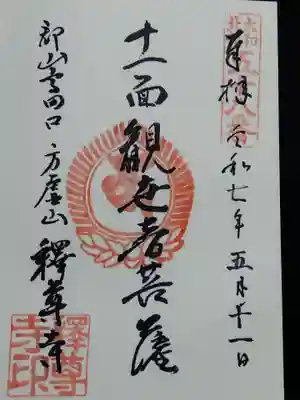 奉拝 令和七年五月二十一日
十一面観世音菩薩
郡山高田口 方廣山 釋尊寺
釋尊寺印